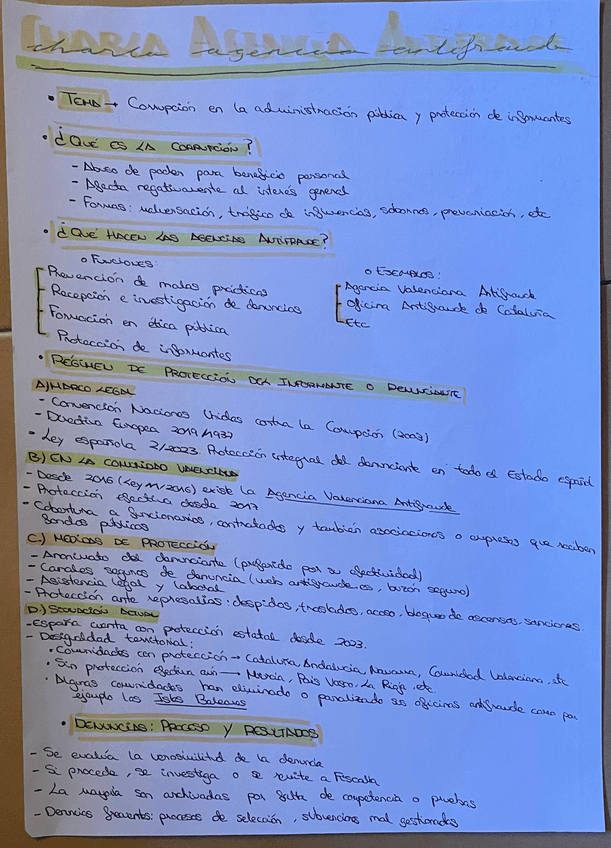 CHARLA AGENCIA ANTIFRAUDE
charla agencia antifraude
• TEMA → Corrupción en la administración pública y protección de informantes
• ¿QUÉ ES LA CORRUPCIÓN?
- Abuso de poder para beneficio personal
- Afecta negativamente al interés general
- Formas: malversación, tráfico de influencias, sobornos, prevaricación, etc
• ¿QUÉ HACEN LAS AGENCIAS ANTIFRAUDE?
o Funciones:
Prevención de malas prácticas
Recepción e investigación de denuncias
Formación en ética pública
Protección de informantes
o EJEMPLOS:
Agencia Valenciana Antifraude
Oficina Antifraude de Cataluña
Etc
• RÉGIMEN DE PROTECCIÓN DEL INFORMANTE O DENUNCIANTE
A) MARCO LEGAL
- Convención Naciones Unidas contra la Corrupción (2003)
- Directiva Europea 2019/1937
• Ley española 2/2023. Protección integral del denunciante en todo el Estado español
B) EN LA COMUNIDAD VALENCIANA
- Desde 2016 (Ley 11/2016) existe la Agencia Valenciana Antifraude
- Protección efectiva desde 2017
- Cobertura a funcionarios, contratados y también asociaciones o empresas que reciben
fondos públicos
C) MEDIDAS DE PROTECCIÓN
- Anonimato del denunciante (preferido por su efectividad)
- Canales seguros de denuncia (web antifraude.es, buzón seguro)
- Asistencia legal y laboral
- Protección ante represalias: despidos, traslados, acoso, bloqueo de ascensos, sanciones.
D) SITUACIÓN ACTUAL
- España cuenta con protección estatal desde 2023.
- Desigualdad territorial:
• Comunidades con protección → Cataluña, Andalucía, Navarra, Comunidad Valenciana, etc
• Sin protección efectiva aún → Murcia, País Vasco, La Rioja, etc
• Algunas comunidades han eliminado o paralizado sus oficinas antifraude como por
ejemplo las Islas Baleares
• DENUNCIAS: PROCESO Y RESULTADOS
- Se evalúa la verosimilitud de la denuncia
- Si procede, se investiga o se remite a Fiscalía
- La mayoría son archivadas por falta de competencia o pruebas
- Denuncias frecuentes: procesos de selección, subvenciones mal gestionadas